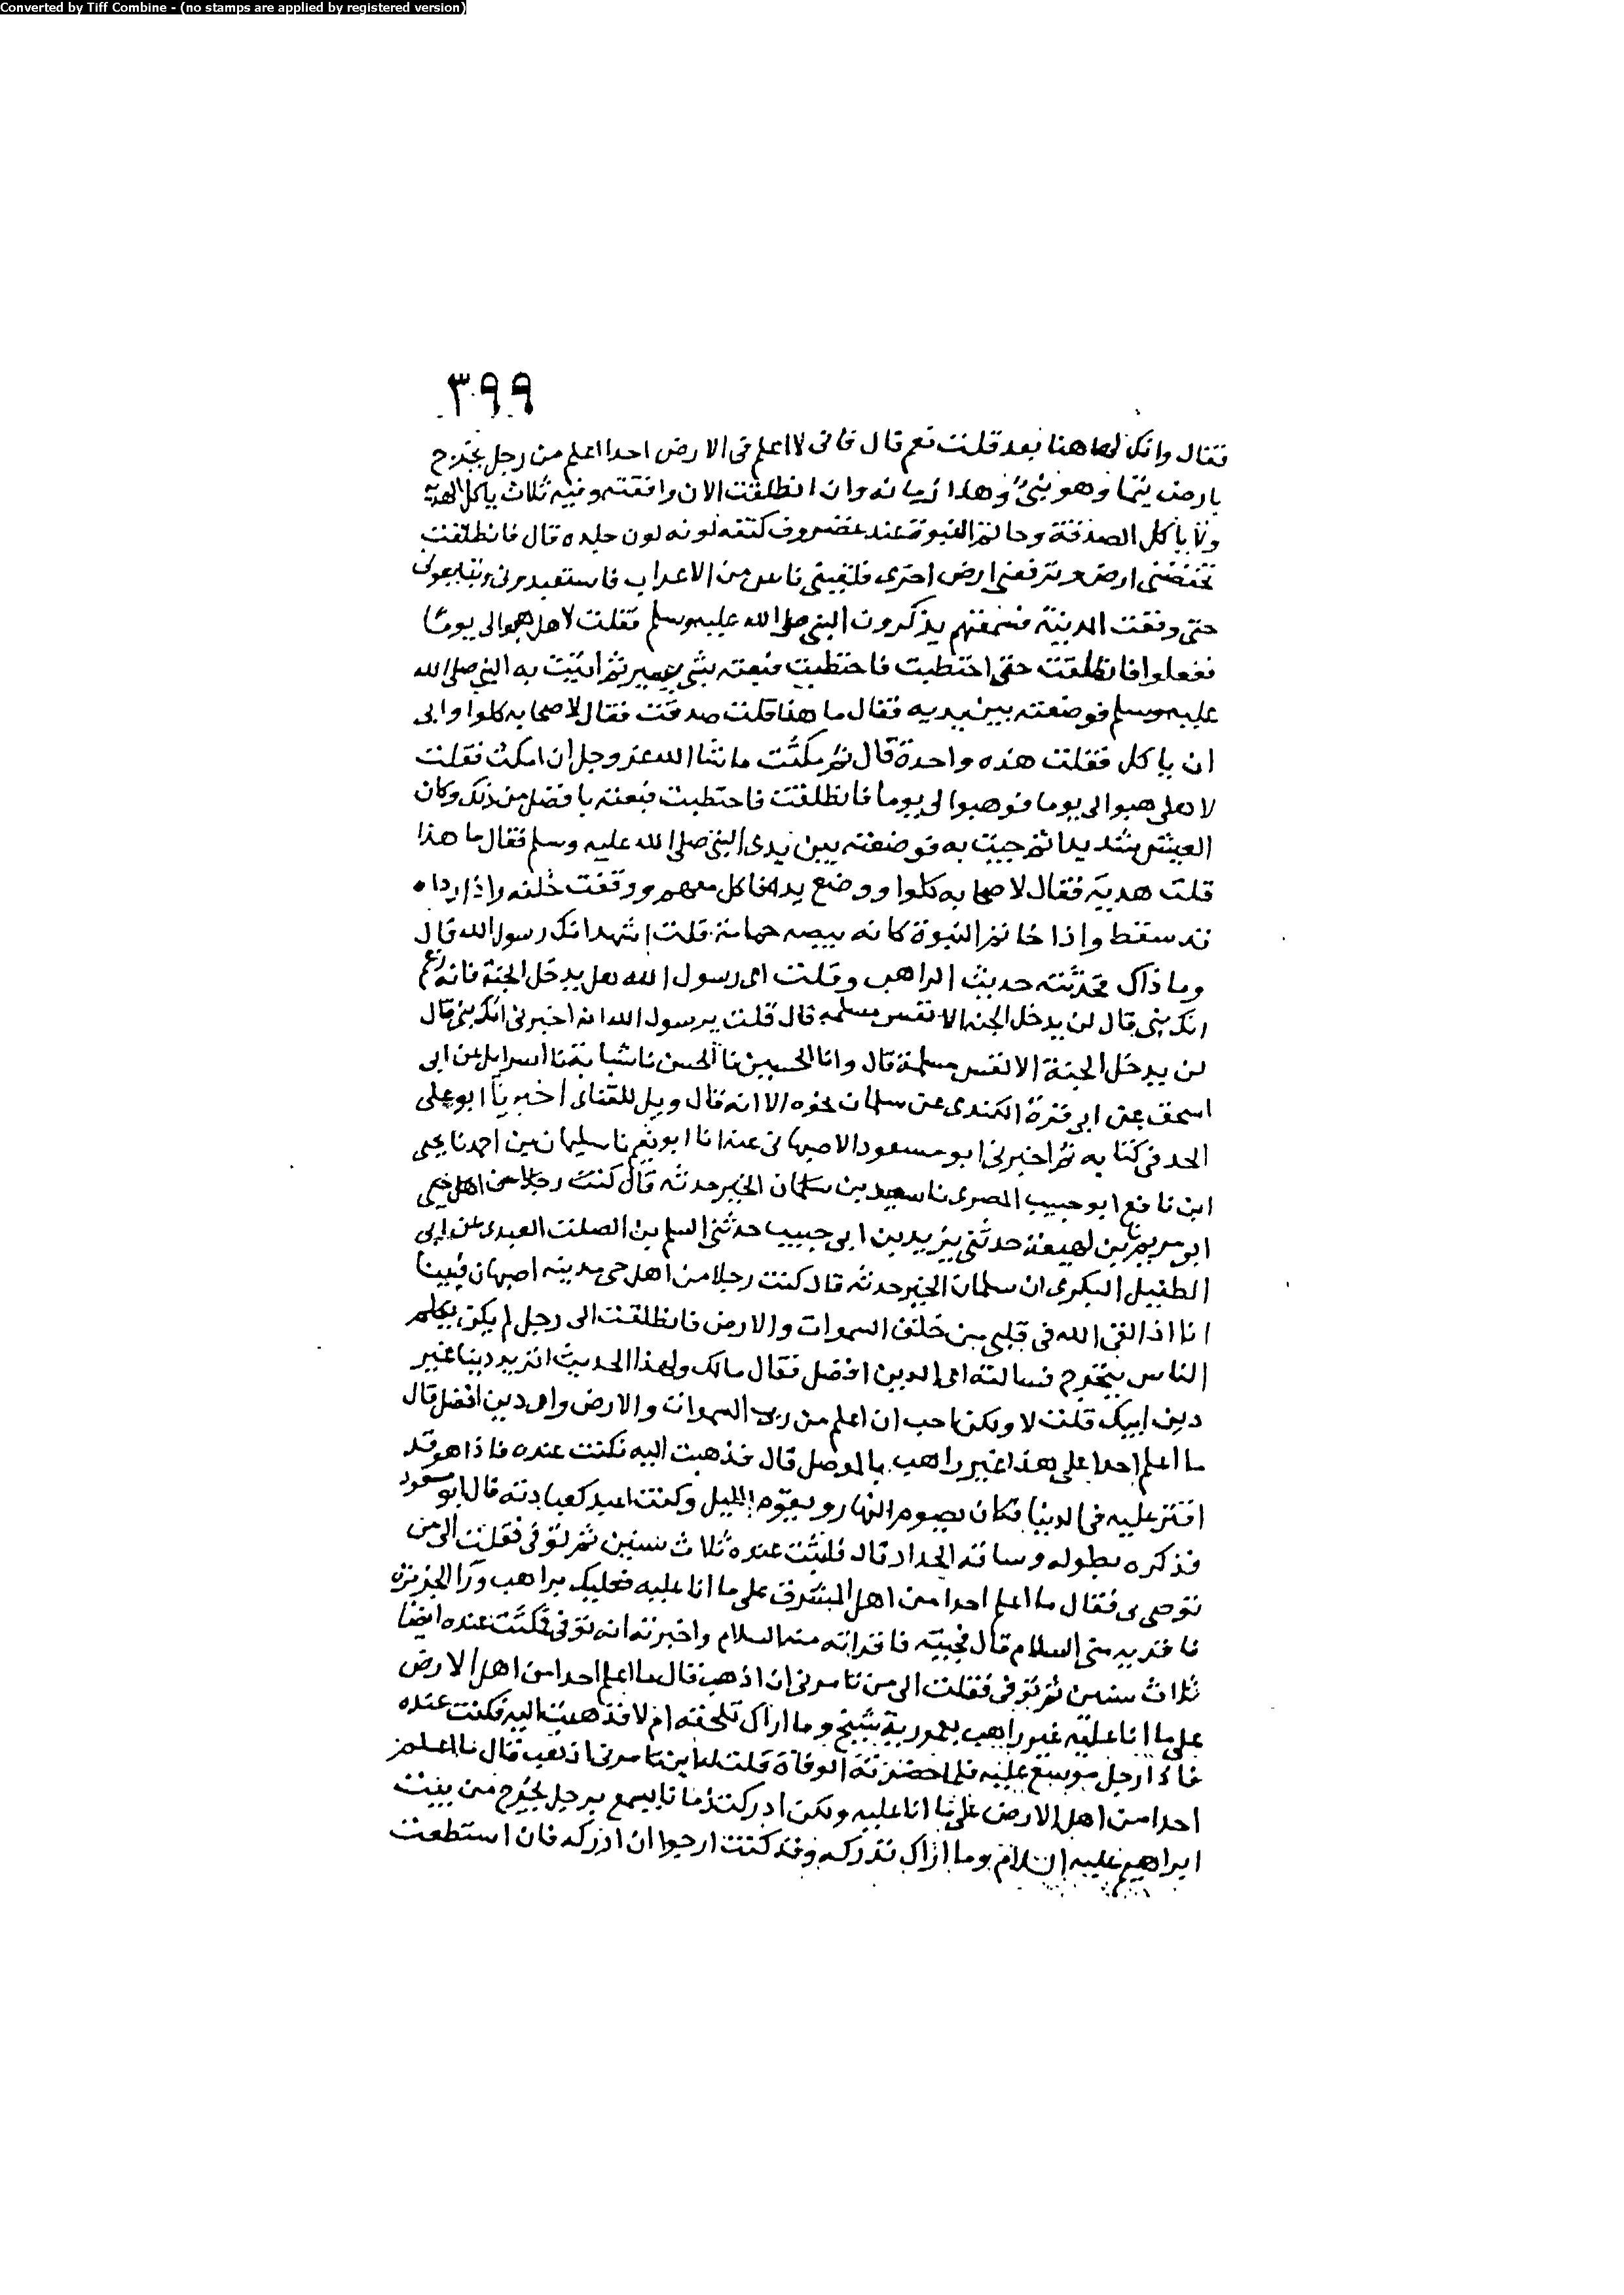 Converted by Tiff Combine - (no stamps are applied by registered version)
٣٩٩
فقال وانك لها هنا بعد قلت نعم قال فانى لا اعلم فى الارض احدا اعلم من رجل يخرج
بارض تيما وهو نبى وهذا زمانه وان انطلقت الان وافقته وفيه ثلاث ياكل الهدية
ولا ياكل الصدقة وخاتم النبوة عند غضروف كتفه لونه لون جلده قال فانطلقت
تخفضنى ارض وترفعنى ارض اخرى فلقينى ناس من الاعراب فاستعبدونى وتبايعونى
حتى وقعت المدينة فسمعتهم يذكرون النبى صلى الله عليه وسلم فقلت لاهلى هبوا لى يوما
ففعلوا فانطلقت حتى احتطبت فاحتطبت فبعته بشى يسير ثم اتيت به النبى صلى الله
عليه وسلم فوضعته بين يديه فقال ما هذا قلت صدقة فقال لاصحابه كلوا وابى
ان ياكل فقلت هذه واحدة قال ثم مكثت ما شا الله عز وجل ان امكث فقلت
لاهلى هبوا لى يوما فوهبوا لى يوما فانطلقت فاحتطبت فبعته بافضل من ذلك وكان
العيش شديدا ثم جيت به فوضعته بين يدى النبى صلى الله عليه وسلم فقال ما هذا
قلت هدية فقال لاصحابه كلوا ووضع يده فاكل معهم ووقفت خلفه واذا رداه
قد سقط واذا خاتم النبوة كانه بيضه حمامة قلت اشهد انك رسول الله قال
وما ذاك فحدثته حديث الراهب وقلت اى رسول الله هل يدخل الجنة فانه زعم
انك نبى قال لن يدخل الجنه الا نفس مسلمه قال قلت يرسول الله انه اخبرنى انك نبى قال
لن يدخل الجنة الا نفس مسلمة قال وانا الحسين نا الحسن نا شبابة نا اسرايل عن ابى
اسحق عن ابى قرة الكندى عن سلمان نحوه الا انه قال ويل للقناى اخبرنا ابو على
الحد فى كتابه ثم اخبرنى ابو مسعود الاصبهانى عنه انا ابو نعيم نا سليمان بن احمد نا يحيى
ابن نافع ابو حبيب المصرى نا سعيد بن سلمان الخير حدثه قال كنت رجلا من اهل جى
ابو مريم نا بن لهيعة حدثنى يزيد بن ابى حبيب حدثنى السلم بن الصلت العبدى عن ابى
الطفيل البكرى ان سلمان الخير حدثه قال كنت رجلا من اهل جى مدينه اصبهان فبينا
انا اذ القى الله فى قلبى من خلق السموات والارض فانطلقت الى رجل لم يكن يكلم
الناس يتحرج فسالته اى الدين افضل فقال مالك ولهذا الحديث اتريد دينا غير
دين ابيك قلت لا ولكن احب ان اعلم من رب السموات والارض واى دين افضل قال
ما اعلم احدا على هذا غير راهب بالموصل قال فذهبت اليه فكنت عنده فاذا هو قد
اقتر عليه فى الدنيا فكان يصوم النهار ويقوم الليل وكنت اعبد كعبادته قال ابو مسعود
فذكره بطوله وساقه الحداد قال فلبثت عنده ثلاث سنين ثم توفى فقلت الى من
توصى بى فقال ما اعلم احدا من اهل المشرق على ما انا عليه فعليك براهب ورا الجزيرة
فاقريه منى السلام قال فجيته فاقراته منه السلام واخبرته انه توفى فمكثت عنده ايضا
ثلاث سنين ثم توفى فقلت الى من تامرنى ان اذهب قال ما اعلم احدا من اهل الارض
على ما انا عليه غير راهب بعمورية شيخ وما اراك تلحقه ام لا فذهبت اليه فكنت عنده
فاذا رجل موسع عليه فلما حضرته الوفاة قلت له اين تامرنى اذهب قال ما اعلم
احدا من اهل الارض على ما انا عليه ولكن ادركت زمانا يسمع برجل يخرج من بيت
ابراهيم عليه السلام وما اراك تدركه وقد كنت ارجوا ان ادركه فان استطعت